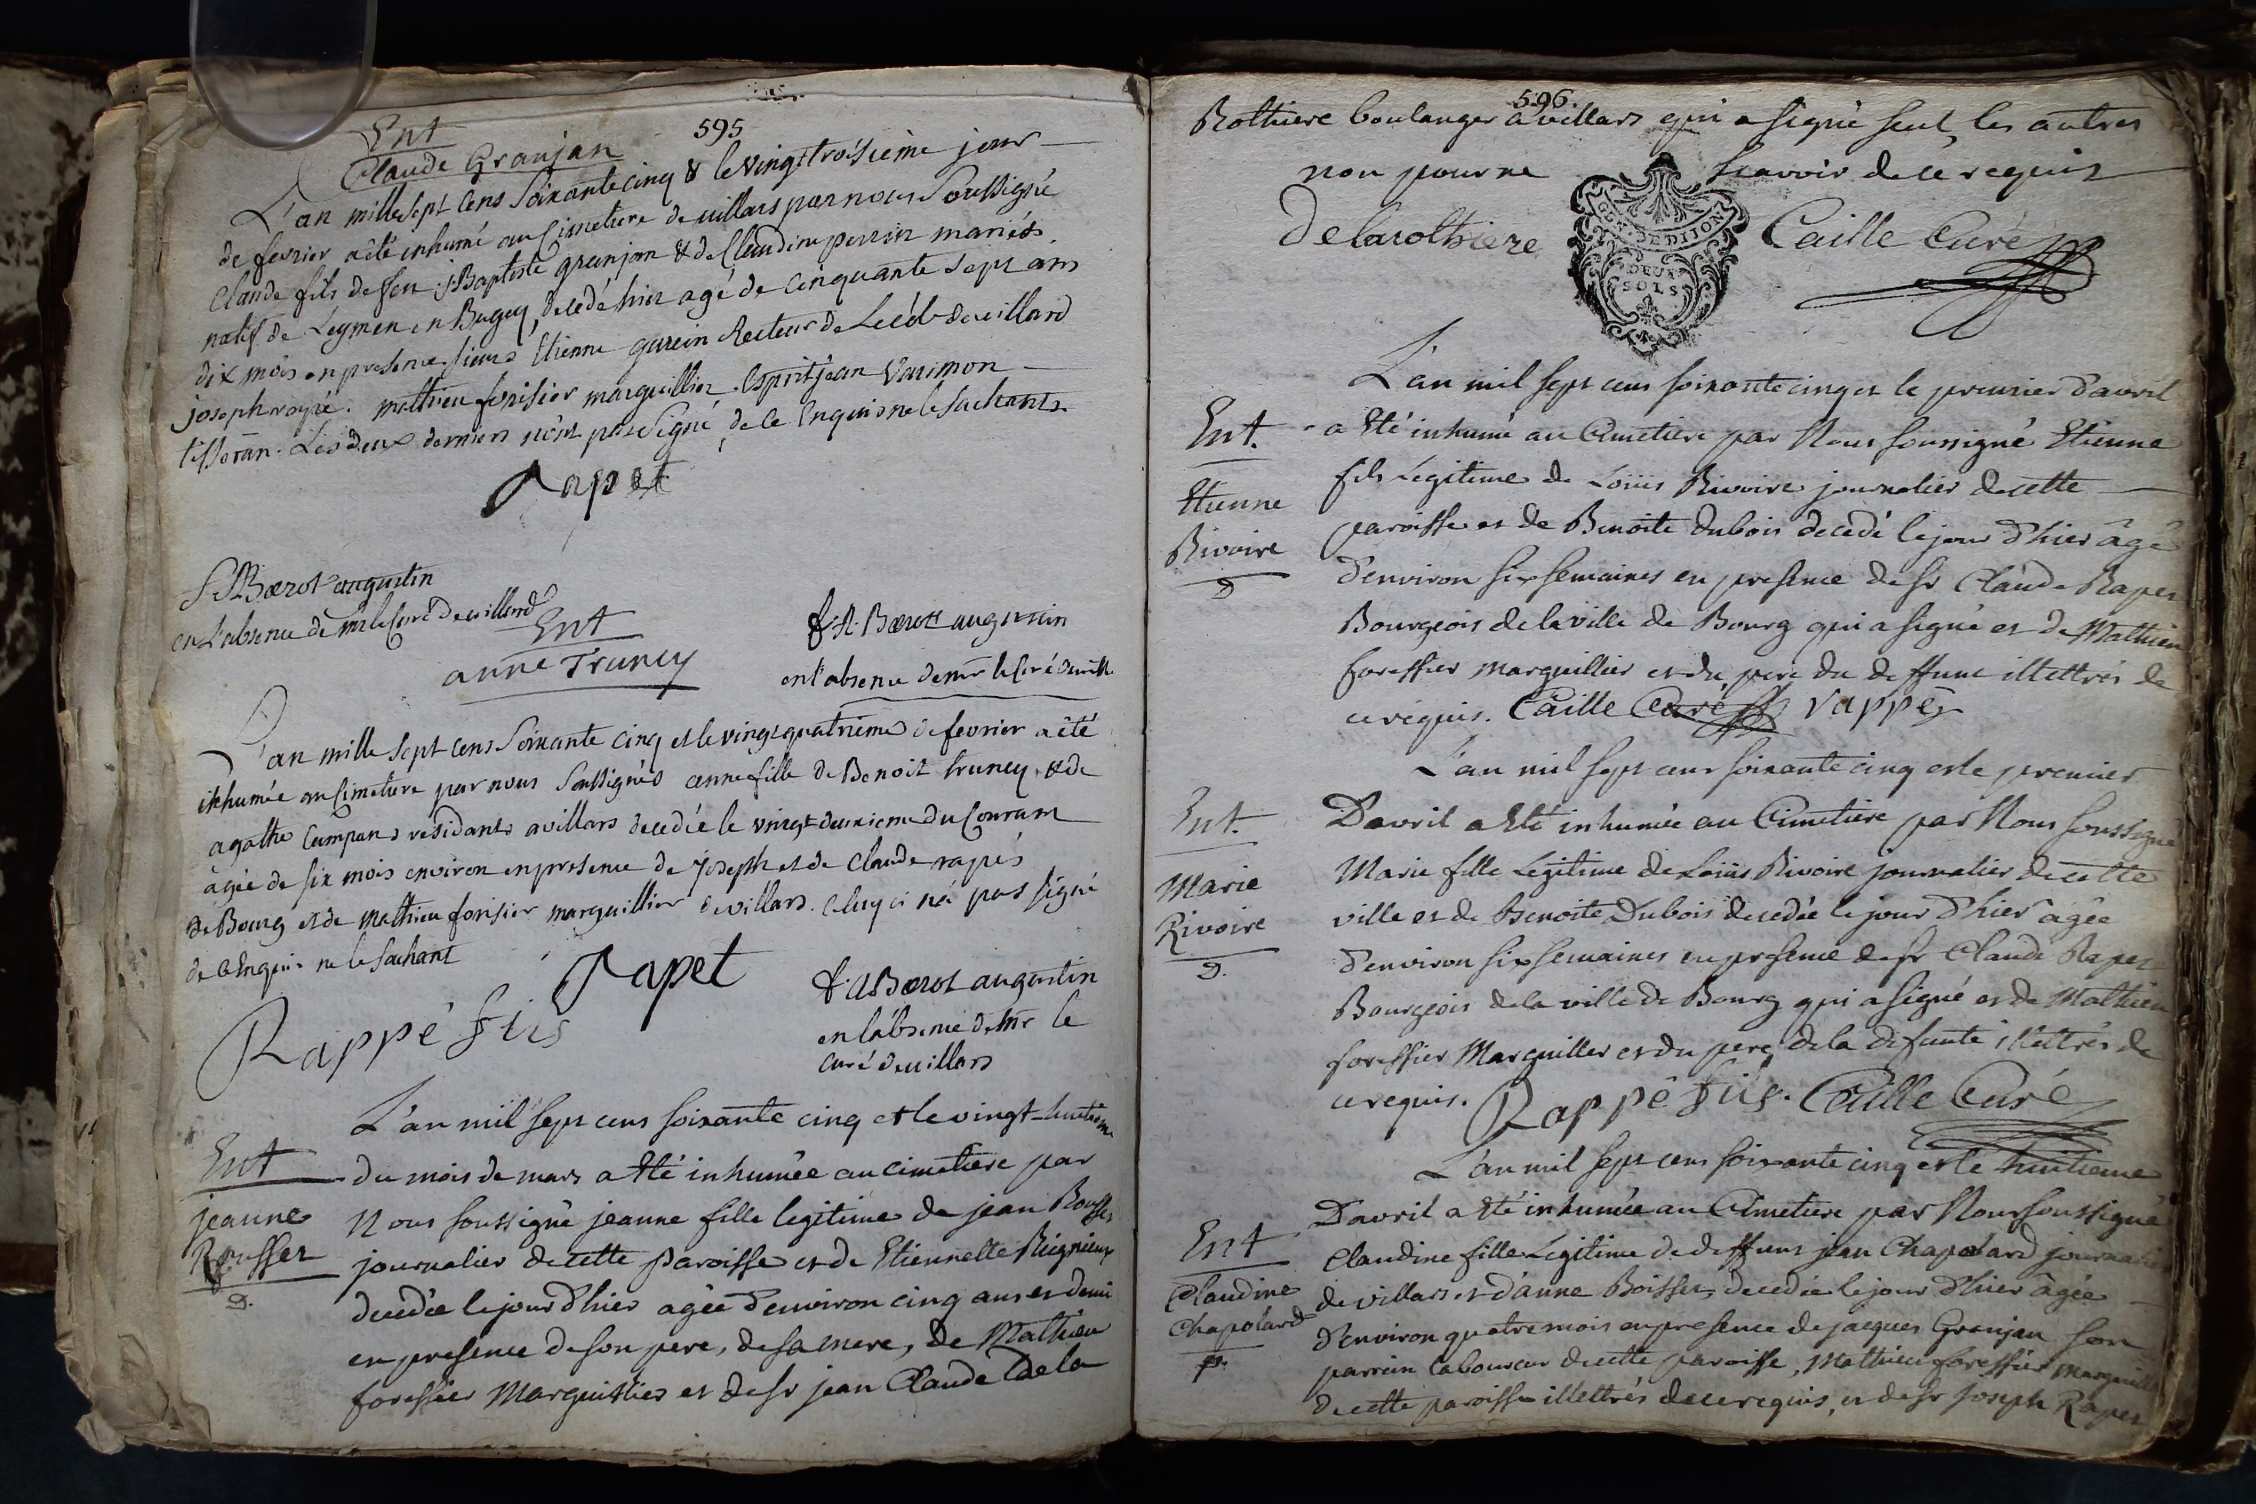 595
Ent
Claude Granjan
L'an mille sept cens soixante cinq & le vingt troisième jour
de fevrier a été inhumé au cimetiere de villars par nous soussigné
claude fils de feu j Baptiste granjan & de Claudine perrin mariés
natif de Leymen en Bugey, decedé hier agé de cinquante sept ans
dix mois en presence sieurs Etienne guerin Recteur de Lecole de villard
joseph rapé. mathieu forisier marguillier. Esprit jean Varimon
tisseran. Les deux derniers n'ont pas signé de ce Enquis ne le sachants
Rapet
f. A Barot augustin
en L'absence de mr le Curé de villard
Ent
anne Truncy
f. A. Barot augustin
en l'absence de mr le Curé de vill.
L'an mille sept cens soixante cinq et le vingt quatrieme de fevrier a été
inhumée au cimetiere par nous soussignés anne fille de Benoit truncy & de
agathe Campan residants a villars decedée le vingt deuxieme du Courant
âgée de six mois environ en presence de joseph et de claude rapés
de Bourg et de mathieu forisier marguillier de villars. celuy ci n'a pas signé
de ce Enquis ne le sachant
Rapet
Rappé fils
f. A Barot augustin
en l'absence de mr le
curé de villars
L'an mil sept cens soixante cinq et le vingt-huitieme
Ent
du mois de mars a Eté inhumée au cimetiere par
jeanne
Nous soussigné jeanne fille legitime de jean Rousset
Rousset
journalier de cette Paroisse et de Etiennette Reignieux
D.
decedée le jour d'hier agée d'environ cinq ans et demi
en presence de son pere, de sa mere, de Mathieu
foressier Marguillier et de sr jean Claude de la
596.
Rothiere boulanger a villars qui a signé seul les autres
non pour ne scavoir de ce requis
Delarothiere Caille Curé
GEN. DE DIJON
DEUX
SOLS
L'an mil sept cens soixante cinq et le premier d'avril
Ent.
a Eté inhumé au Cimetiere par Nous soussigné Etienne
fils Legitime de Loüis Rivoire journalier de cette
Etienne
paroisse et de Benoite Dubois decedé le jour d'hier âgé
Rivoire
D
d'environ six semaines en presence de sr Claude Rapet
Bourgeois de la ville de Bourg qui a signé et de Mathieu
foressier marguillier et du pere du deffunt illettrés de
ce requis. Caille Curé Vappé
L'an mil sept cens soixante cinq et le premier
Ent.
D'avril a Eté inhumée au Cimetiere par Nous soussigné
Marie
Marie fille Legitime de Loüis Rivoire journalier de cette
Rivoire
ville et de Benoite Dubois decedée le jour d'hier âgée
D.
d'environ six semaines en presence de sr Claude Rapet
Bourgeois de la ville de Bourg qui a signé et de Mathieu
foressier Marguiller et du pere de la defunte illettrés de
ce requis. Rappé fils. Caille Curé
L'an mil sept cens soixante cinq et le huitieme
D'avril a Eté inhumée au Cimetiere par Nous soussigné
Ent
Claudine fille Legitime de deffunt jean Chapolard journalier
Claudine
de villars et d'anne Boisset decedée le jour d'hier âgée
Chapolard
p.
d'environ quatre mois en presence de jacques Granjan son
parrein laboureur de cette paroisse, Mathieu foressier Marguillier
de cette paroisse illettrés de ce requis, et de sr joseph Rapet